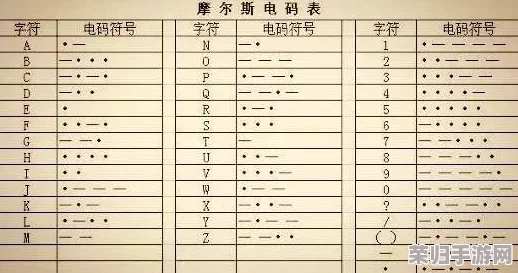 摩尔斯电码表
字符 电码符号 字符 电码符号 字符 电码符号
A •— N —• 1 •————
B —••• O ——— 2 ••———
C —•—• P •——• 3 •••——
D —•• Q ——•— 4 ••••—
E • R •—• 5 •••••
F ••—• S ••• 6 —••••
G ——• T — 7 ——•••
H •••• U ••— 8 ———••
I •• V •••— 9 ————•
J •——— W •—— 0 —————
K —•— X —••— ? ••——••
L •—•• Y —•—— / —••—•
M —— Z ——•• () —•——•—
— —••••—
• •—•—•—
荣归手游网